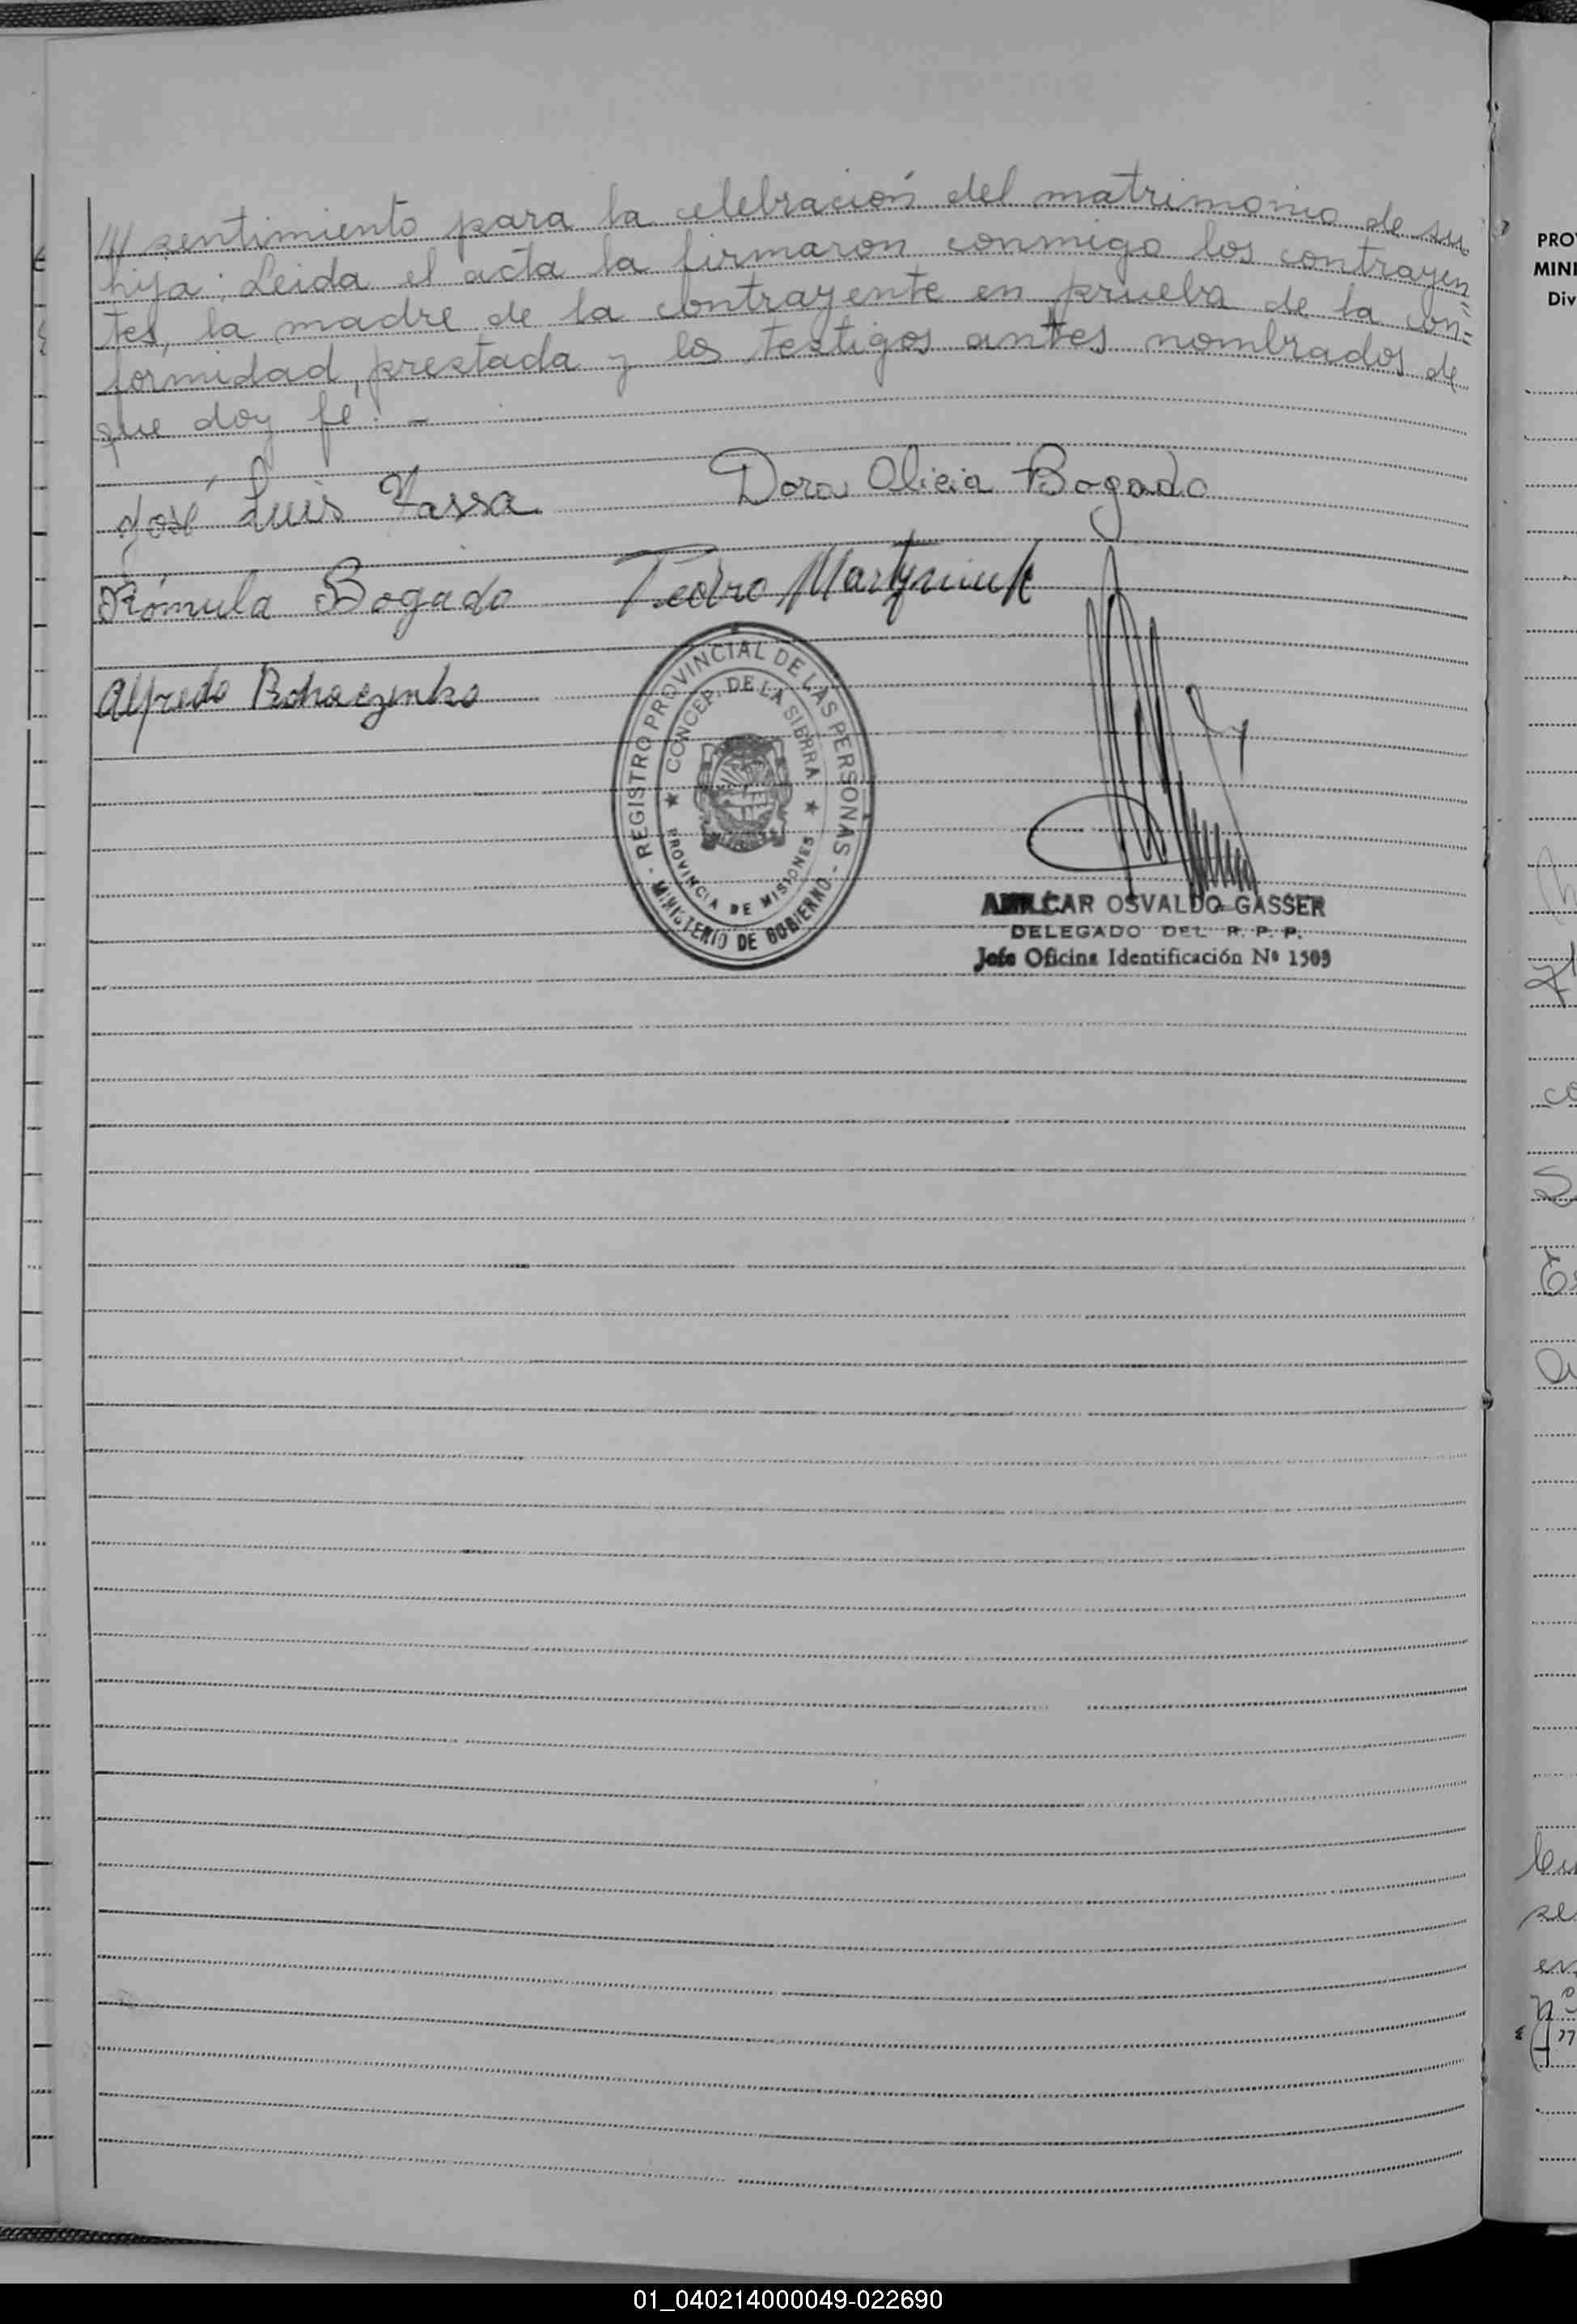 /// sentimiento para la celebración del matrimonio de su
hija: Leida el acta la firmaron conmigo los contrayen=
tes, la madre de la contrayente en prueba de la con=
formidad, prestada y los testigos antes nombrados de
que doy fé: -
José Luis Dora Alicia Bogado
Rómula Bogado Pedro Martyniuk
Alfredo
REGISTRO PROVINCIAL DE LAS PERSONAS
CONCEP. DE LA SIERRA
PROVINCIA DE MISIONES
MINISTERIO DE GOBIERNO
AMILCAR OSVALDO GASSER
DELEGADO DEL R. P. P.
Jefe Oficina Identificación Nº 1509
PRO
MINI
Div
01_040214000049-022690